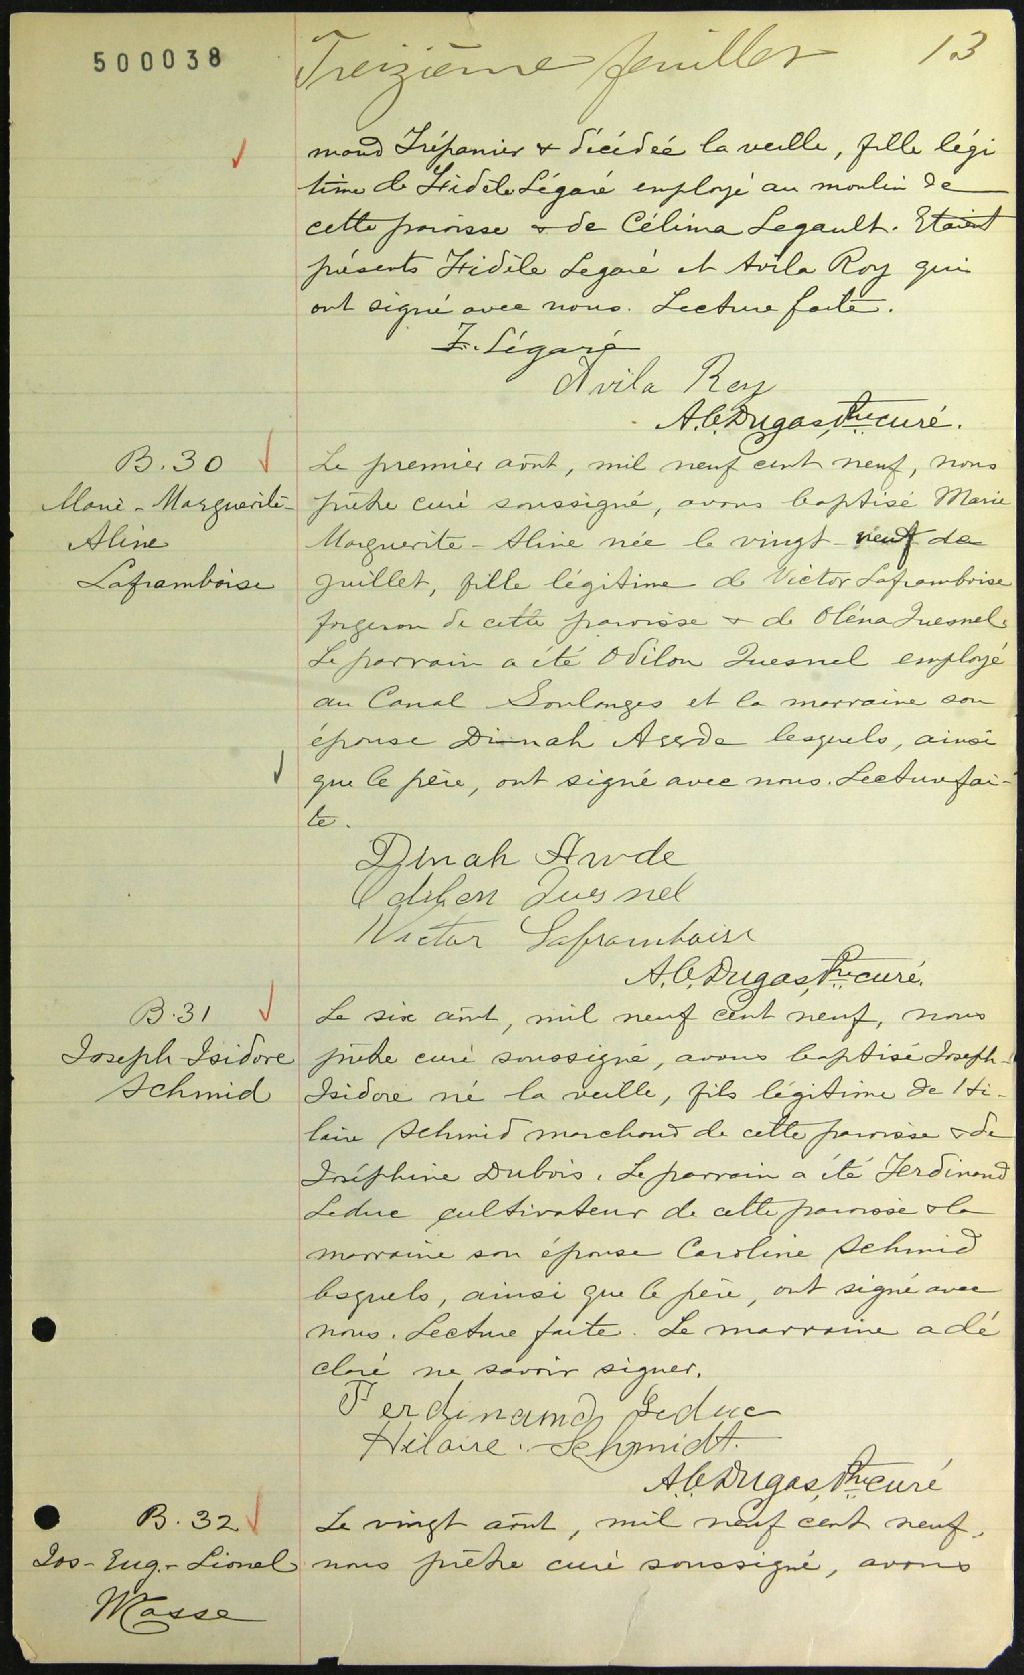 500038
Treizième feuillet 13
mond Trépanier & décédée la veille, fille légi
time de Fidèle Légaré employé au moulin de
cette paroisse & de Célima Legault. Etaient
présents Fidèle Legaré et Avila Roy qui
ont signé avec nous. Lecture faite.
F. Légaré
Avila Roy
A.C. Dugas, Ptre curé.
B. 30
Marie-Marguerite-
Aline
Laframboise
Le premier août, mil neuf cent neuf, nous
prêtre curé soussigné, avons baptisé Marie
Marguerite-Aline née le vingt-neuf de
juillet, fille légitime de Victor Laframboise
forgeron de cette paroisse & de Oléna Quesnel.
Le parrain a été Odilon Quesnel employé
au Canal Soulanges et la marraine son
épouse Dinah lesquels, ainsi
que le père, ont signé avec nous. Lecture fai-
te.
Dinah Awde
Odilon Quesnel
Victor Laframboise
A.C. Dugas, Ptre curé.
B. 31
Joseph Isidore
Schmid
Le six août, mil neuf cent neuf, nous
prêtre curé soussigné, avons baptisé Joseph-
Isidore né la veille, fils légitime de Hi-
laire Schmid marchand de cette paroisse & de
Joséphine Dubois. Le parrain a été Ferdinand
Leduc cultivateur de cette paroisse & la
marraine son épouse Caroline Schmid
lesquels, ainsi que le père, ont signé avec
nous. Lecture faite. Le marraine a dé
claré ne savoir signer.
Ferdinand Leduc
Hilaire Schmidt.
A.C. Dugas, Ptre curé
B. 32
Jos-Eug.-Lionel
Masse
Le vingt août, mil neuf cent neuf,
nous prêtre curé soussigné, avons